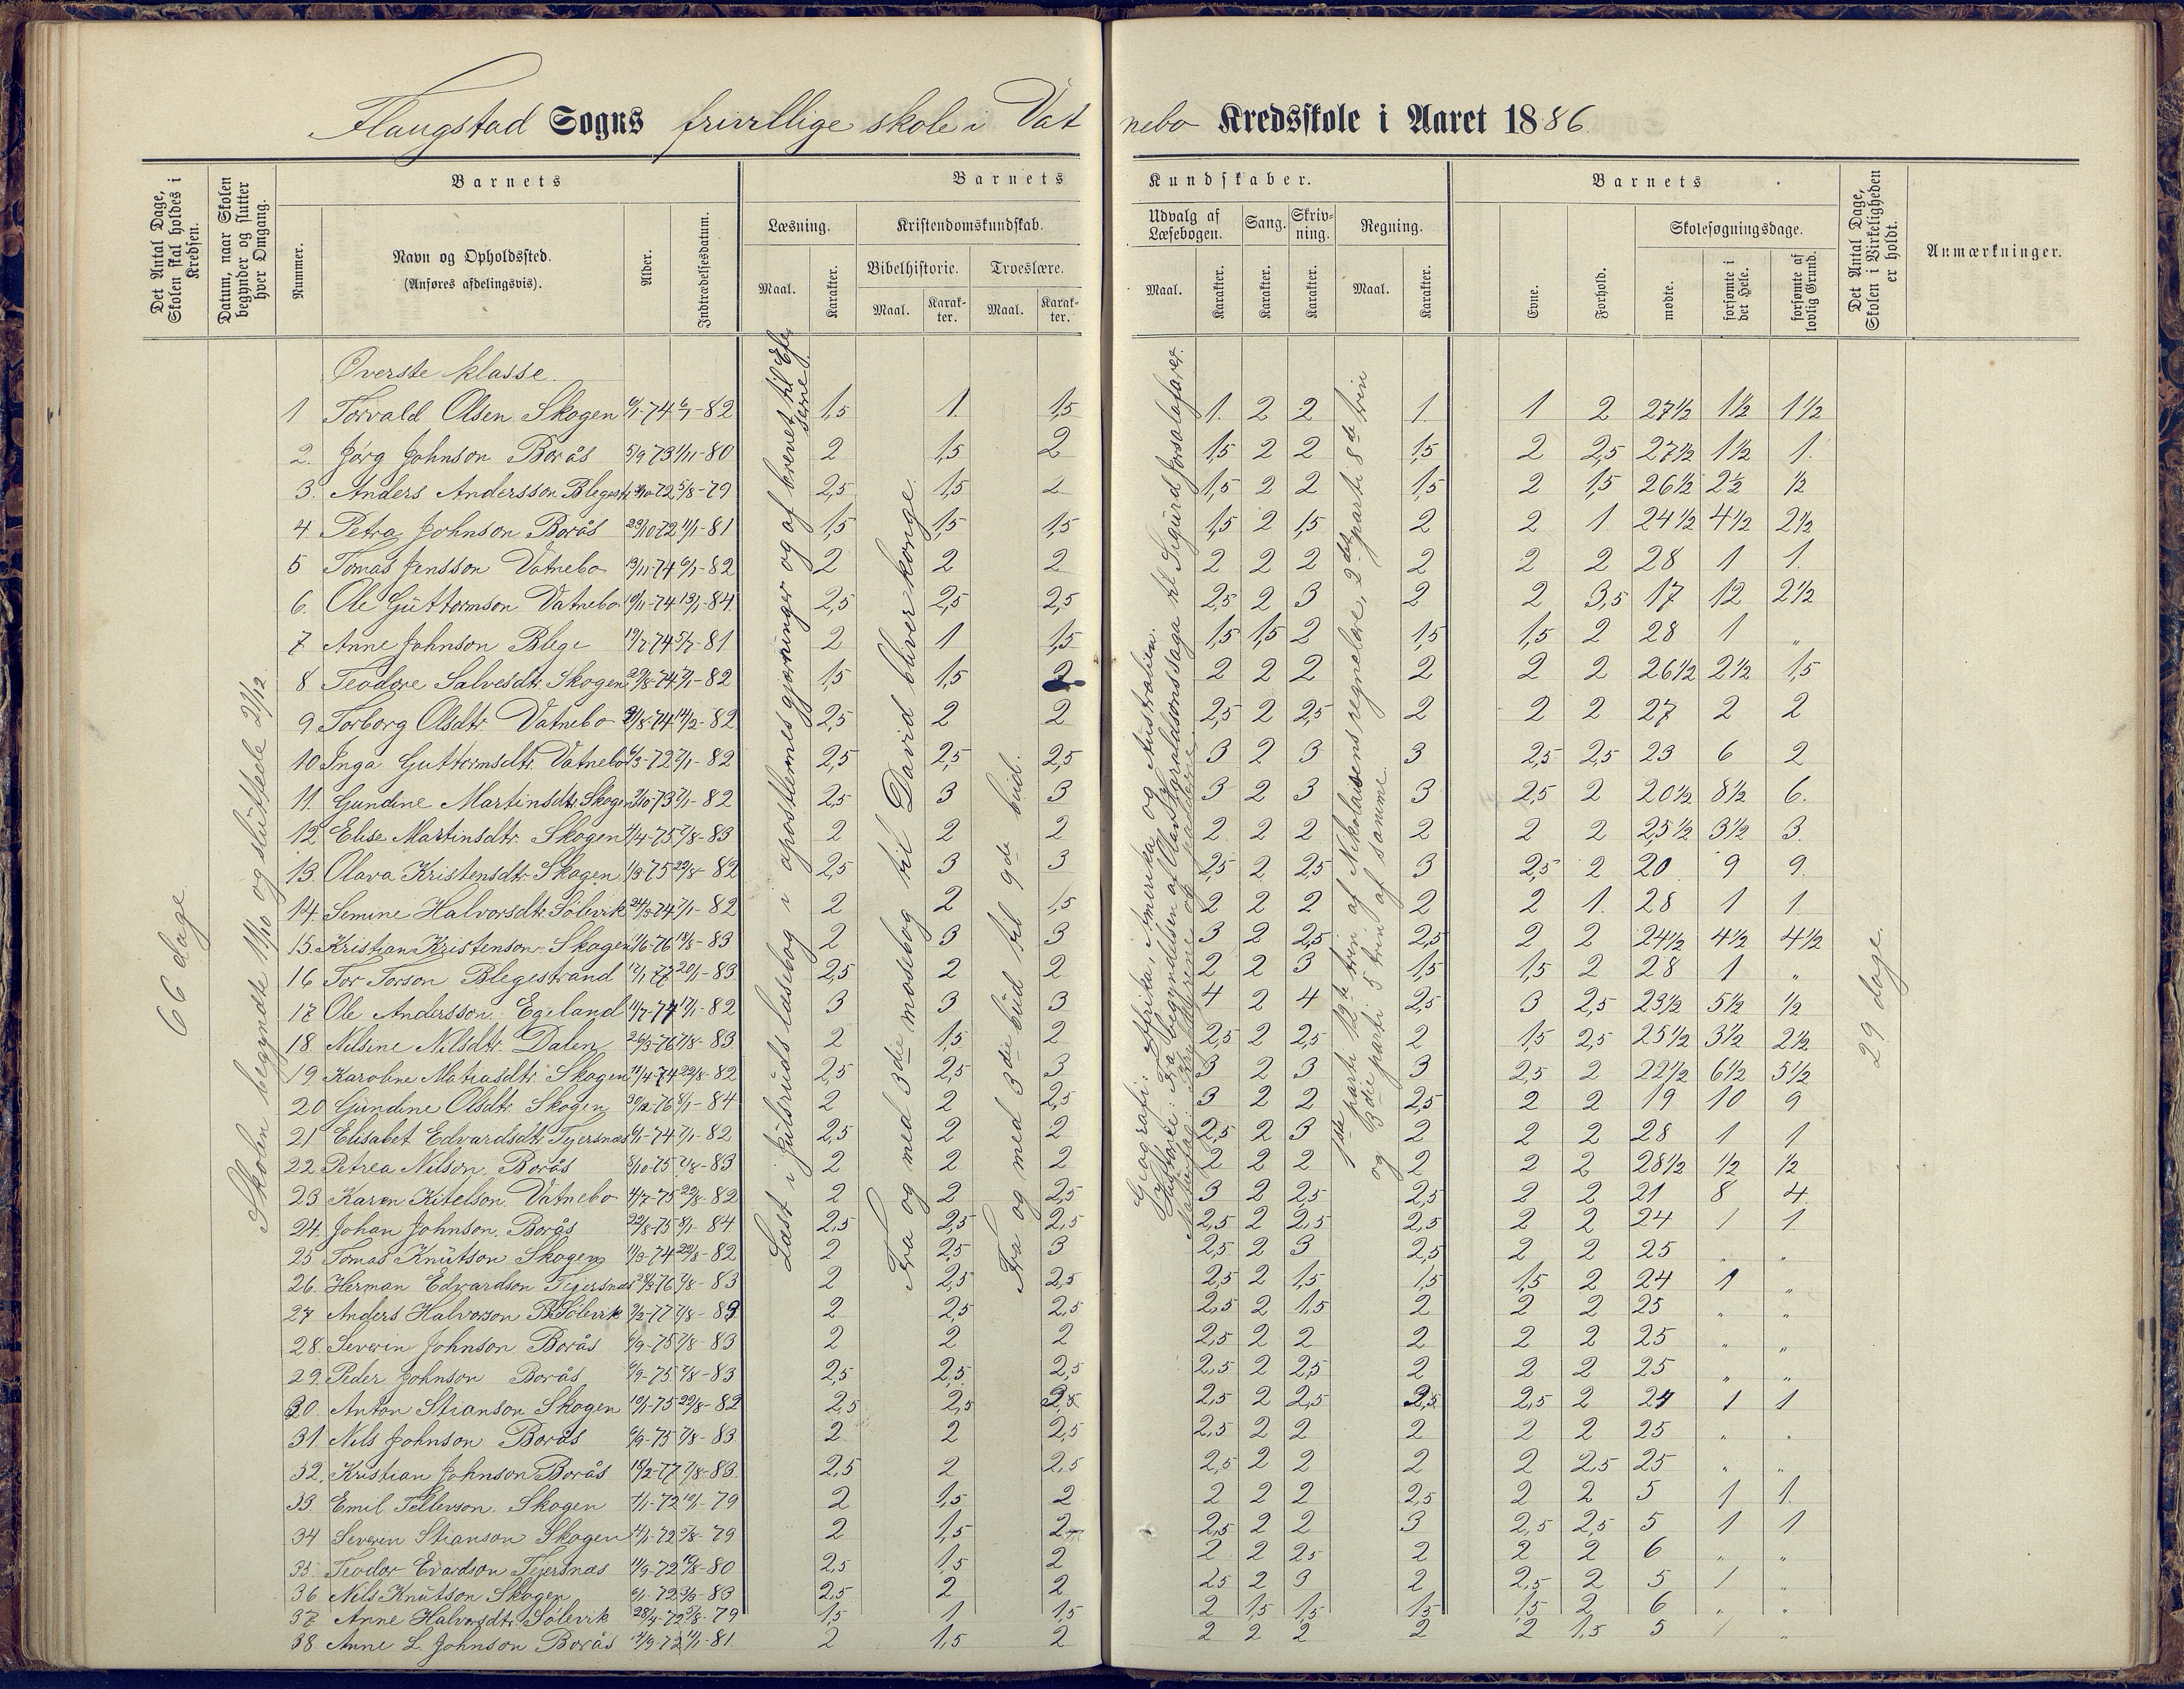 Flaugstad Sogns frivillige skole i Vatnebo Kredsskole i Aaret 1886.
Det Antal Dage, Skolen skal holdes i Kredsen.
Datum, naar Skolen begynder og slutter hver Omgang.
Barnets
Nummer.
Navn og Opholdssted.
(Anføres afdelingsvis).
Alder.
Indtrædelsesdatum.
Barnets Kundskaber.
Læsning.
Maal.
Karakter.
Kristendomskundskab.
Bibelhistorie.
Maal.
Karakter.
Troeslære.
Maal.
Karakter.
Udvalg af Læsebogen.
Maal.
Karakter.
Sang.
Karakter.
Skrivning.
Karakter.
Regning.
Maal.
Karakter.
Barnets
Evne.
Forhold.
Skolesøgningsdage.
mødte.
forsømte i det Hele.
forsømte af lovlig Grund.
Det Antal Dage, Skolen i Virkeligheden er holdt.
Anmærkninger.
66 dage
Skolen begyndte 11/10 og sluttede 21/12
Øverste klasse.
Læst i Julsruds læsebog i apostlernes gjerninger og af brevet til Efeserne
Fra og med 3die mosebog til David bliver konge.
Fra og med 3die bud til 9de bud.
Geografi: Afrika, Amerika og Australien.
Historie: Fra begyndelsen af Olav Haraldsons saga til Sigurd Jorsalafarer.
1ste parti 12te trin af Nikolaisens regnebøe, 2det parti 8de trin
og 3die parti 5 trin af samme.
29 dage.
1 Torvald Olsen Skogen 6/1-74 6/1-82 1,5 1. 1,5 1. 2 2 1. 1 2 27½ 1½ 1½
2. Jørg Johnson Borås 5/9 73 1/11-80 2 1,5 2 1,5 2 2 1,5 2 2,5 27½ 1½ 1.
3. Anders Andersson Blegestr. 5/8-79 2,5 1,5 2 1,5 2 2 1,5 2 1,5 26½ 2½ ½
4. Petra Johnson Borås 23/10 72 11/1-81 1,5 1,5 1,5 1,5 2 1,5 2 2 1 24½ 4½ 2½
5 Tomas Jensson Vatnebo 19/11-74 6/1-82 2 2 2 2 2 2 2 2 2 28 1 1.
6. Ole Guttormson Vatnebo 10/11-74 13/1-84. 2,5 2,5 2,5 2,5 2 3 2 2 3,5 17 12 2½
7 Anne Johnson Blege 19/2 74 5/7-81 2 1 1,5 1,5 1,5 2 1,5 1,5 2 28 1 „
8 Teodore Salvesdtr. Skogen 22/8-74 7/1-82 1,5 1,5 2 2 2 2 2 2 2 26½ 2½ 1,5
9 Torborg Olsdtr. Vatnebo 14/2-82 2,5 2 2 2,5 2 2,5 2 2 2 27 2 2
10 Inga Guttormsdtr. Vatnebo 7/1-82 2,5 2,5 2,5 3 2 3 3 2,5 2,5 23 6 2
11. Gundine Martinsdtr. Skogen 7/1-82 2,5 3 3 3 2 3 3 2,5 2 20½ 8½ 6.
12 Elise Martinsdtr. Skogen 4/4-75 7/8-83 2 2 2 2 2 2 2 2 2 25½ 3½ 3.
13. Olava Kristensdtr. Skogen 22/8-82 2,5 3 3 2,5 2 2,5 3 2,5 2 20 9 9
14. Semine Halvorsdtr. Sølevik 24/3-74 7/1-82 2 2 1,5 2 2 2 2 2 1. 28 1 1
15. Kristian Kristenson Skogen 13/8-83 2 3 3 3 2 2,5 2,5 2 2 24½ 4½ 4½
16 Tor Torson Blegestrand 12/1 77 20/1-83 2,5 2 2 2 2 3 1,5 1,5 2 28 1 „
17 Ole Andersson Egeland 11/7-74 17/1-82 3 3 3 4 2 4 2,5 3 2,5 23½ 5½ ½
18. Nilsine Nilsdtr. Dalen 26/3-76 7/8-83 2 1,5 2 2,5 2 2,5 2 1,5 2,5 25½ 3½ 2½
19. Karoline Matiasdtr. Skogen 11/4-74 22/8-82 2,5 2,5 3 3 2 3 3 2,5 2 22½ 6½ 5½
20 Gundine Olsdtr. Skogen 8/1-84 2 2 2,5 3 2 2 2,5 2 2 19 10 9
21 Elisabet Edvardsdtr. Tejersnæs 6/1-74 7/1-82 2,5 2 2 2,5 2 3 2 2 2 28 1 1
22 Petrea Nilson Borås 5/10-75 7/8-83 2 2 2 2 2 2 2 2 2 28½ ½ ½
23 Karen Kitelson Vatnebo 4/7-75 22/8-82 2 2 2,5 3 2 2,5 2,5 2 2 21 8 4
24. Johan Johnson Borås 22/8-75 8/1-84 2,5 2,5 2,5 2,5 2 2,5 2,5 2 2 24 1 1.
25 Tomas Knutson Skogen 11/3-74 22/8-82 2 2,5 3 2,5 2 3 2,5 2 2 25 „ „
26. Herman Edvardson Tejersnæs 7/8-83 2 2,5 2,5 2,5 2 1,5 1,5 1,5 2 24 1 „
27 Anders Halvorson Sølevik 9/2-77 7/8-83 2 2,5 2,5 2,5 2 1,5 2 2 2 25 „ „
28. Severin Johnson Borås 6/9-75 7/8-83 2 2 2 2,5 2 2 2 2 2 25 „ „
29. Peder Johnson Borås 6/9-75 7/8-83 2,5 2,5 2,5 2,5 2 2,5 2 2 2 25 „ „
30. Anton Stianson Skogen 10/1-75 22/8-82 2,5 2,5 2,5 2,5 2 2,5 2,5 2,5 2 24 1 1
31. Nils Johnson Borås 6/9-75 7/8-83 2 2 2,5 2,5 2 2 2 2 2 25 „ „
32. Kristian Johnson Borås 18/2-77 7/8-83. 2,5 2 2,5 2,5 2 2 2 2 2,5 25 „ „
33. Emil Tellevson Skogen 79 2 1,5 2 2 2 2 2,5 2 2 5 1 1.
34 Severin Stianson Skogen 5/8-79 2 1,5 2 2,5 2 2 3 2,5 2,5 5 1 1
35 Teodor Evardson Tejersnæs 11/9-72 80 2,5 1,5 2 2 2 2,5 2 2 2 6 „ „
36 Nils Knutson Skogen 83 2,5 2 2 2,5 2 3 2 2,5 2 5 1 „
37 Anne Halvorsdtr. Sølevik 28/4-72 5/8-79 1,5 1 1,5 2 1,5 1,5 1,5 1,5 2 6 „ „
38 Anne L. Johnson Borås 11/1-81. 2 1,5 2 2 2 2 2 2 1,5 5 1 „